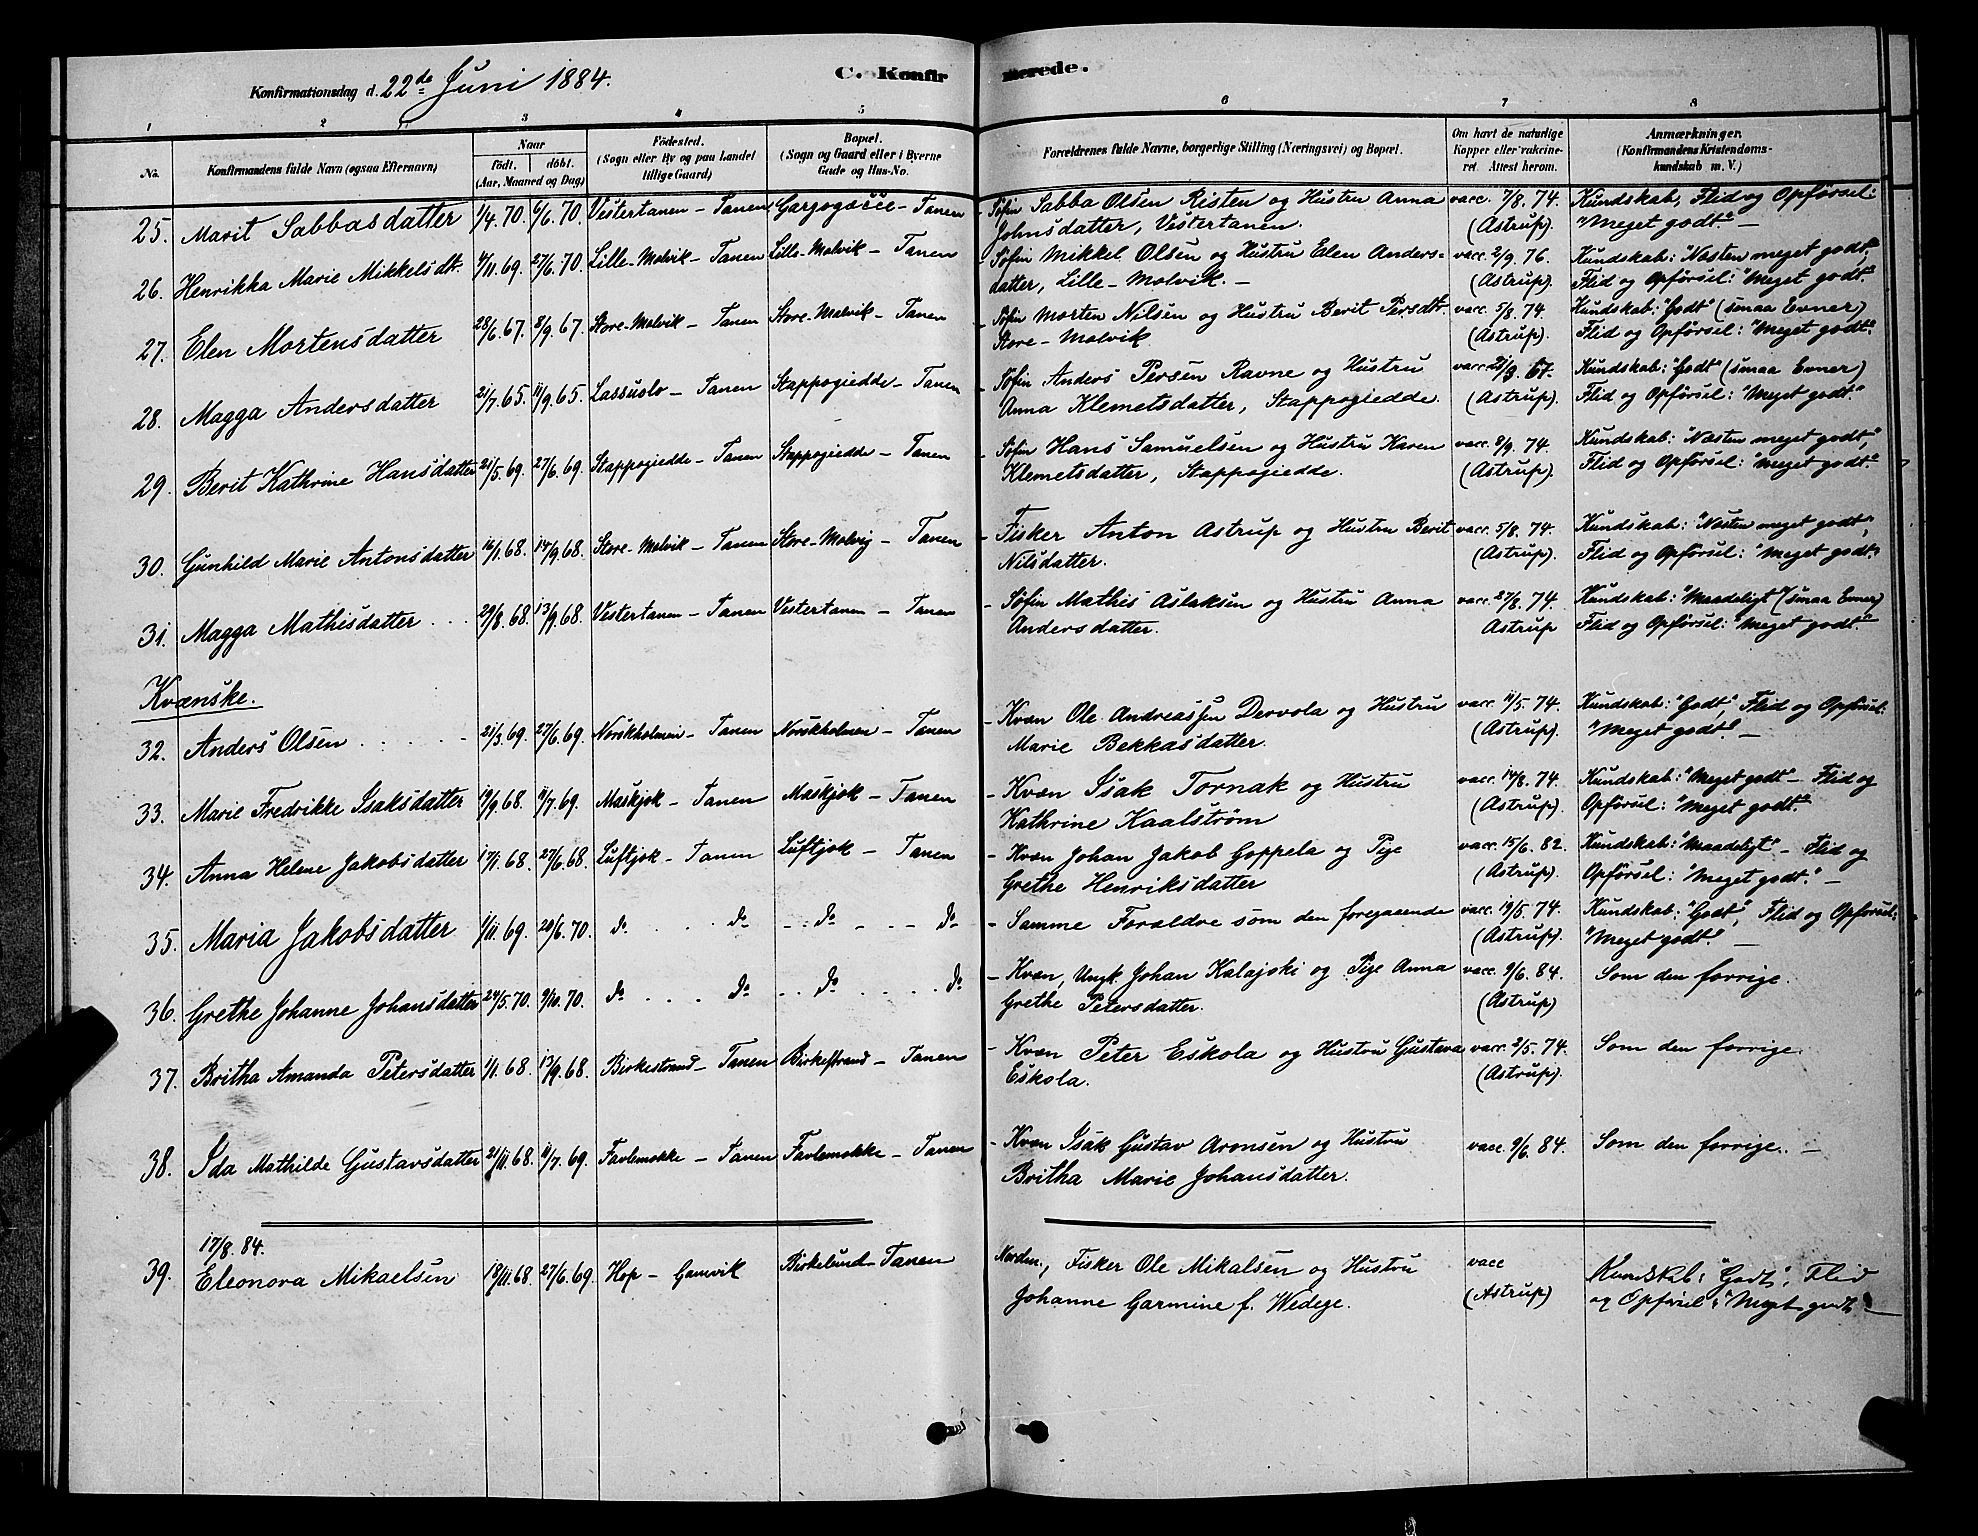 Konfirmationsdag d. 22de Juni 1884.
C. Konfirmerede.
1 2 3 4 5 6 7 8
No. Konfirmandens fulde Navn (ogsaa Efternavn) Naar födt. döbt. (Aar, Maaned og Dag) Födested. (Sogn eller By og paa Landet tillige Gaard) Bopæl. (Sogn og Gaard eller i Byerne Gade og Hus-No. Forældrenes fulde Navne, borgerlige Stilling (Næringsvei) og Bopæl. Om havt de naturlige Kopper eller vaccineret. Attest herom. Anmærkninger. (Konfirmandens Kristendomskundskab m. V.)
25. Marit Sabbasdatter 1/4.70. 6/6.70. Vestertanen - Tanen - Tanen - Søfin Sabba Olsen Risten og Hustru Anna vacc. 7/8.74. Kundskab, Flid og Opførsel:
Johnsdatter, Vestertanen. (Astrup). "Meget godt." -
26. Henrikka Marie Mikkelsdt. 4/11.69. 27/6.70. Lille-Molvik - Tanen Lille-Molvik - Tanen - Søfin Mikkel Olsen og Hustru Elen Anders- vacc. 2/9.76. Kundskab: "Næsten meget godt",
datter, Lille-Molvik. - (Astrup). Flid og Opførsel: "Meget godt."
27. Elen Mortensdatter 28/6.67. 8/9.67. Store-Molvik - Tanen Store-Molvik - Tanen - Søfin Morten Nilsen og Hustru Berit Persdt. vacc. 5/8.74. Kundskab: "Godt" (smaa Evner)
Store-Molvik (Astrup). Flid og Opførsel: "Meget godt."
28. Magga Andersdatter 21/7.65. 11/9.65. Lassuolo - Tanen Stappogiedde - Tanen - Søfin Anders Persen Ravne og Hustru vacc. 21/9.67. Kundskab: "Godt" (smaa Evner)
Anna Klemetsdatter, Stappogiedde. (Astrup). Flid og Opførsel: "Meget godt."
29. Berit Kathrine Hansdatter 21/5.69. 27/6.69. Stappogiedde - Tanen Stappogiedde - Tanen - Søfin Hans Samuelsen og Hustru Karen vacc. 8/9.74. Kundskab: "Næsten meget godt",
Klemetsdatter, Stappogiedde. (Astrup). Flid og Opførsel: "Meget godt."
30. Gunhild Marie Antonsdatter 16/1.68. 14/9.68. Store-Molvik - Tanen Store-Molvig - Tanen - Fisker Anton Astrup og Hustru Berit vacc. 5/8.74. Kundskab: "Næsten meget godt",
Nilsdatter. (Astrup). Flid og Opførsel: "Meget godt."
31. Magga Mathisdatter . . . 29/8.68. 13/9.68. Vestertanen - Tanen Vestertanen - Tanen - Søfin Mathis Aslaksen og Hustru Anna vacc. 27/8.74. Kundskab: "Maadeligt" (smaa Evner)
Andersdatter. Astrup Flid og Opførsel: "Meget godt."
Kvænske.
32. Anders Olsen . . . . . 21/3.69. 27/6.69. Norskholmen - Tanen Norskholmen - Tanen - Kvæn Ole Andreassen Dervola og Hustru vacc. 11/5.74. Kundskab: "Godt", Flid og Opførsel:
Marie Bekkasdatter. (Astrup). "Meget godt" -
33. Marie Fredrikke Isaksdatter 19/9.68. 11/7.69. Maskjok - Tanen Maskjok - Tanen - Kvæn Isak Tornak og Hustru vacc. 14/8.74. Kundskab: "Meget godt" - Flid og
Kathrine Kaalstrøm (Astrup). Opførsel: "Meget godt."
34. Anna Helene Jakobsdatter 17/1.68. 27/6.68. Luftjok - Tanen Luftjok - Tanen - Kvæn Johan Jakob Goppela og Pige vacc. 15/6.82. Kundskab: "Maadeligt" - Flid og
Grethe Henriksdatter (Astrup). Opførsel: "Meget godt." -
35. Maria Jakobsdatter 1/11.69. 20/6.70. do . . do - do - - do - Samme Forældre som den foregaaende vacc. 19/5.74. Kundskab: "Godt", Flid og Opførsel:
(Astrup). "Meget godt." -
36. Grethe Johanne Johansdatter 24/5.70. 9/10.70. do . . . do . . do . . . . do - Kvæn, Ungk. Johan Kalajoki og Pige Anna vacc. 9/6.84. Som den forrige.
Grethe Petersdatter. (Astrup)
37. Britha Amanda Petersdatter 1/1.68. 13/9.68. Birkestrand - Tanen Birkestrand - Tanen - Kvæn Peter Eskola og Hustru Gustava vacc. 2/5.74. Som den forrige.
Eskola. (Astrup).
38. Ida Mathilde Gustavsdatter 21/11.68. 11/7.69. Favlemokke - Tanen Favlemokke - Tanen - Kvæn Isak Gustav Aronsen og Hustru vacc. 9/6.84. Som den forrige. -
Britha Marie Johansdatter.
17/8.84.
39. Eleonora Mikaelsen 19/11.68. 27/6.69. Hop - Gamvik Birkelund - Tanen Norden., Fisker Ole Mikalsen og Hustru vacc Kundskab: "Godt", Flid
Johanne Garmine f. Wedege. (Astrup) og Opførsel: "Meget godt" -